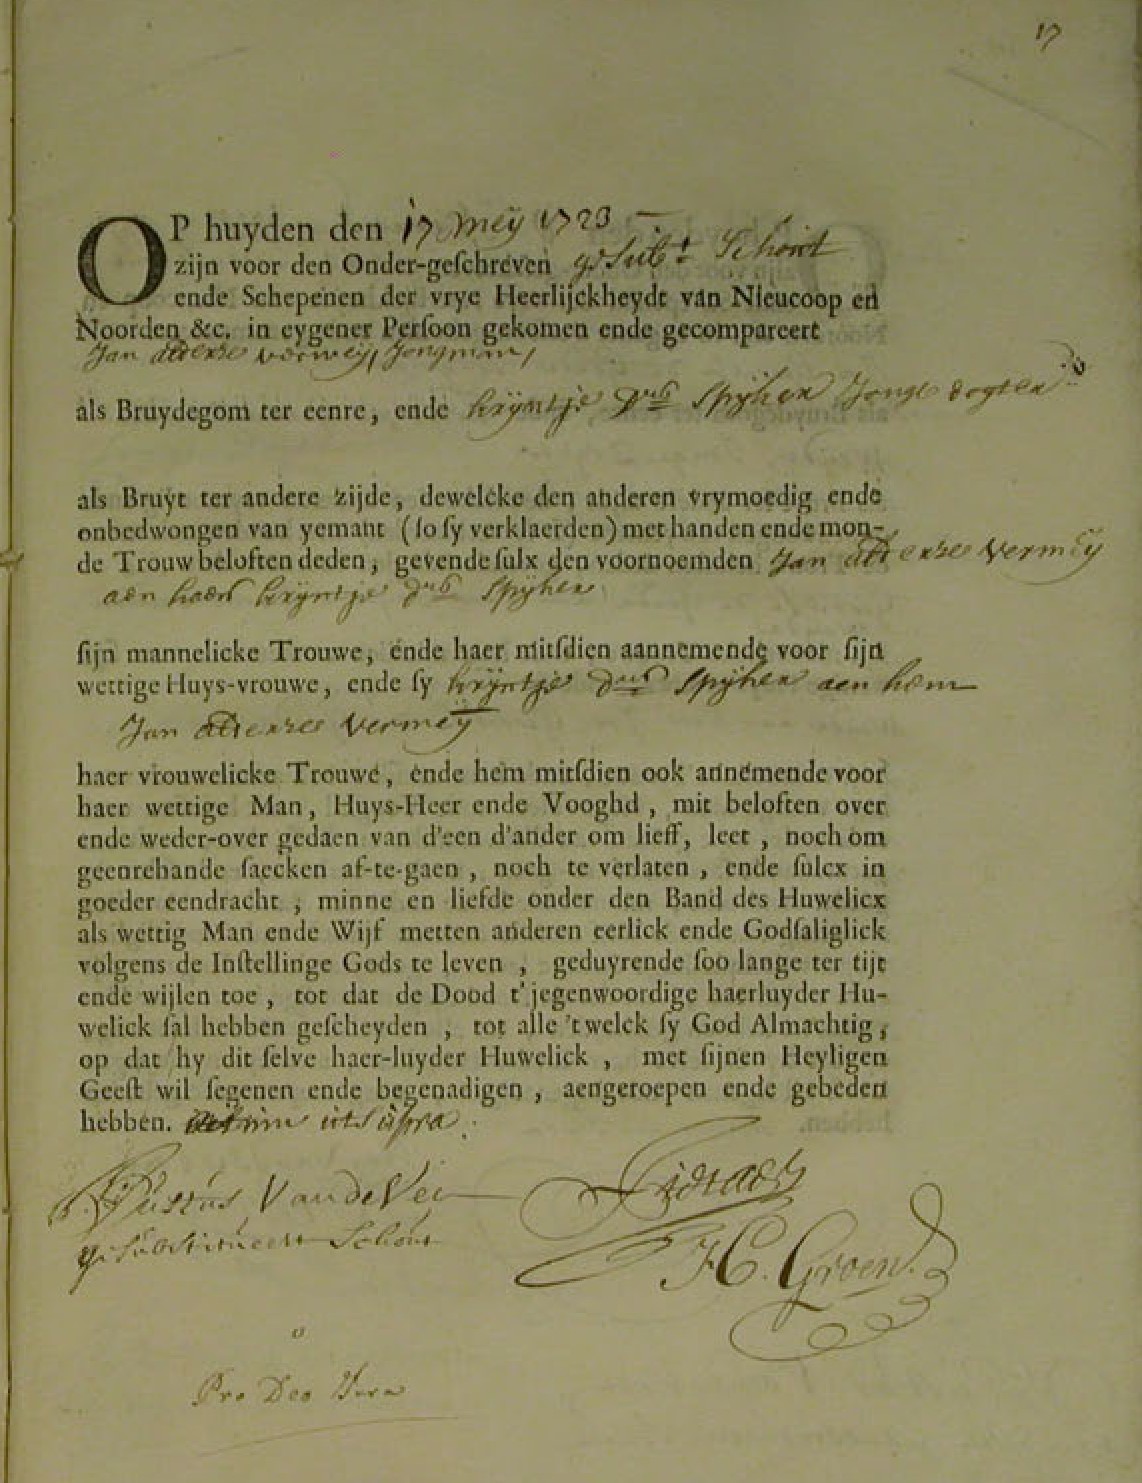 17
OP huyden den 17 Meÿ 1723
zijn voor den Onder-geſchreven gesubt. Schout
ende Schepenen der vrye Heerlijckheydt van Nieucoop en
Noorden &c. in eygener Perſoon gekomen ende gecompareert
Jan Vermeÿ, Jongman,
als Bruydegom ter eenre, ende krijntje Spijker Jonge dogter
als Bruyt ter andere zijde, dewelcke den anderen vrymoedig ende
onbedwongen van yemant (ſo ſy verklaerden) met handen ende mon-
de Trouw beloften deden, gevende ſulx den voornoemden Jan Vermeÿ
aen haer krijntje Spijker
ſijn mannelicke Trouwe, ende haer mitſdien aannemende voor ſijn
wettige Huys-vrouwe, ende ſy krijntje Spijker aen hem
Jan Vermeÿ
haer vrouwelicke Trouwe, ende hem mitſdien ook annemende voor
haer wettige Man, Huys-Heer ende Vooghd, mit beloften over
ende weder-over gedaen van d'een d'ander om lieff, leet, noch om
geenrehande ſaecken af-te-gaen, noch te verlaten, ende ſulcx in
goeder eendracht, minne en liefde onder den Band des Huwelicx
als wettig Man ende Wijf metten anderen eerlick ende Godſaliglick
volgens de Inſtellinge Gods te leven, geduyrende ſoo lange ter tijt
ende wijlen toe, tot dat de Dood t'jegenwoordige haerluyder Hu-
welick ſal hebben geſcheyden, tot alle 'twelck ſy God Almachtig,
op dat hy dit ſelve haer-luyder Huwelick, met ſijnen Heyligen
Geeſt wil ſegenen ende begenadigen, aengeroepen ende gebeden
hebben. Actum ut supra.
Justus Van de Vei
gesubstitueert Schout
H C. Groen.
Pro Deo